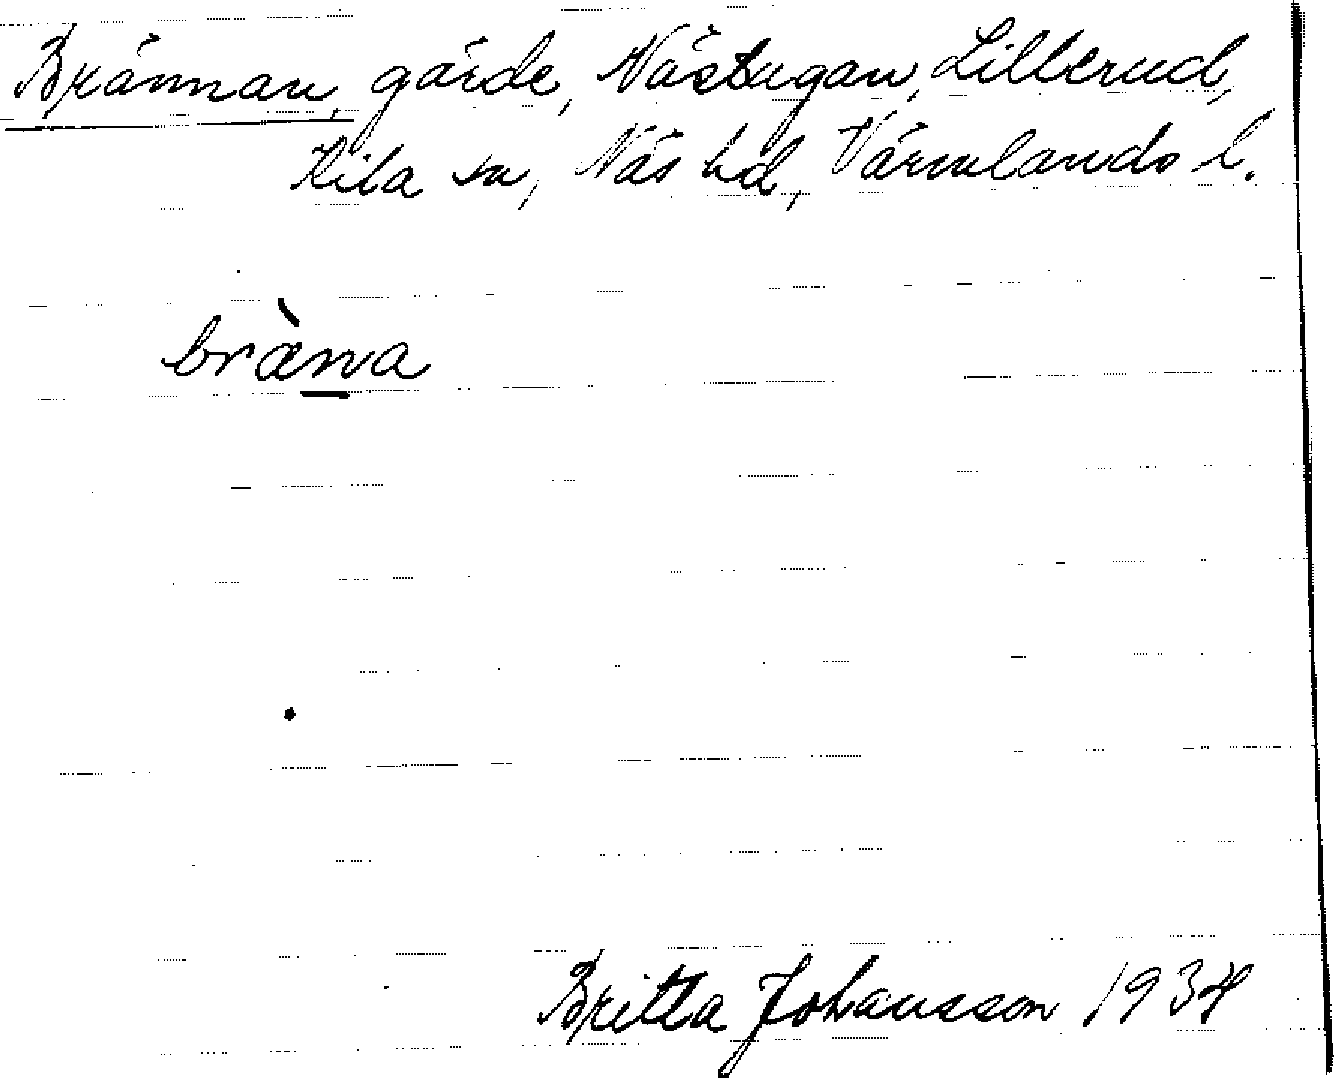 Brännan, gärde, Nästugan, Lillerud,
Kila sn, Näs hd, Värmlands l.
bræ̀n̲a
Britta Johansson 1934